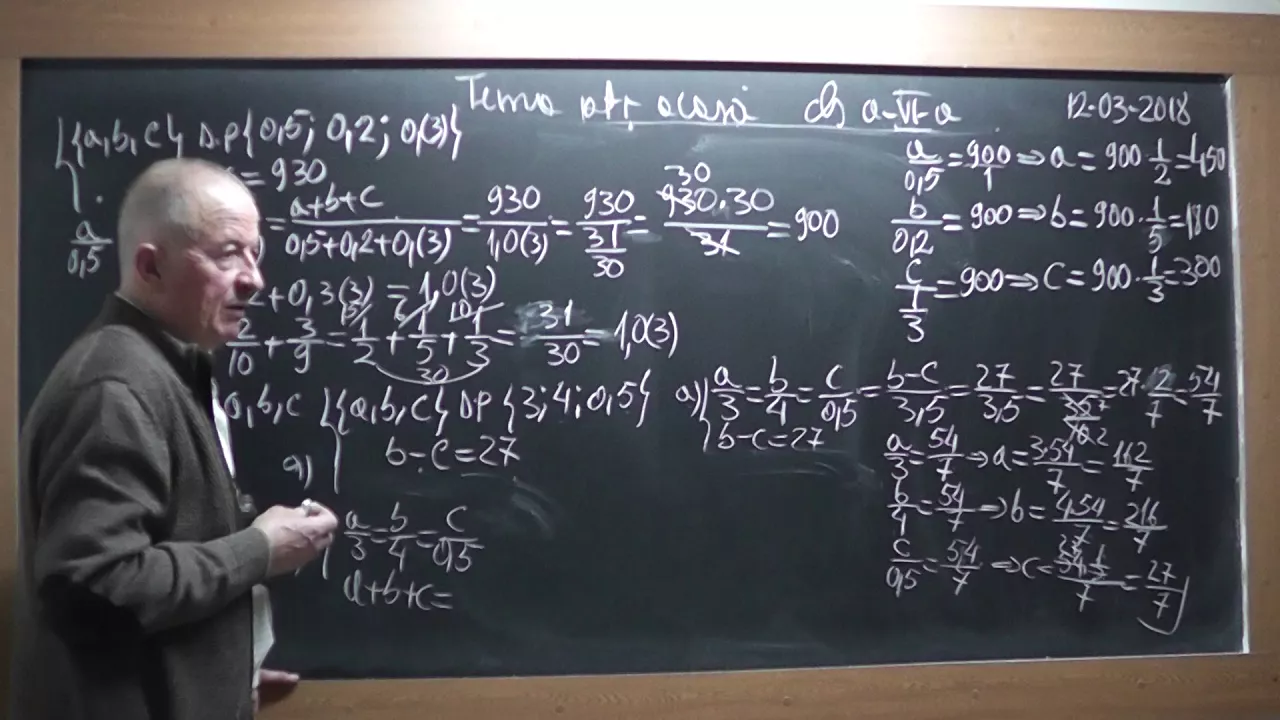 Tema ptr acasă cls a-VI-a 12-03-2018
{a,b,c} D.P {0,5; 0,2; 0,(3)}
= 930
a/0,5 = (a+b+c)/(0,5+0,2+0,(3)) = 930/1,0(3) = 930/(31/30) = (930·30)/31 = 900
30
2+0,3(3) = 1,0(3)
2/10 + 3/9 = 1/2 + 1/5 + 1/3 = 31/30 = 1,0(3)
30
a/0,5 = 900/1 ⇒ a = 900·1/2 = 450
b/0,2 = 900 ⇒ b = 900·1/5 = 180
c/(1/3) = 900 ⇒ c = 900·1/3 = 300
a,b,c {a,b,c} D.P {3; 4; 0,5}
a) b-c=27
a/3 = b/4 = c/0,5
a+b+c=
a) a/3 = b/4 = c/0,5 = (b-c)/3,5 = 27/3,5 = 27/(35/10) = 27·2/7 = 54/7
b-c=27
a/3 = 54/7 ⇒ a = 3·54/7 = 162/7
b/4 = 54/7 ⇒ b = 4·54/7 = 216/7
c/0,5 = 54/7 ⇒ c = (54·1/2)/7 = 27/7